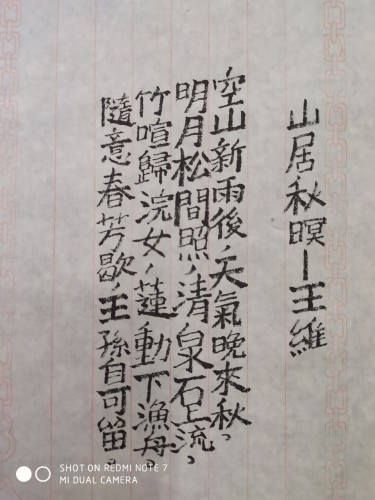 山居秋暝—王維
空山新雨後，天氣晚來秋。
明月松間照，清泉石上流。
竹喧歸浣女，蓮動下漁舟。
隨意春芳歇，王孫自可留。
SHOT ON REDMI NOTE 7
MI DUAL CAMERA